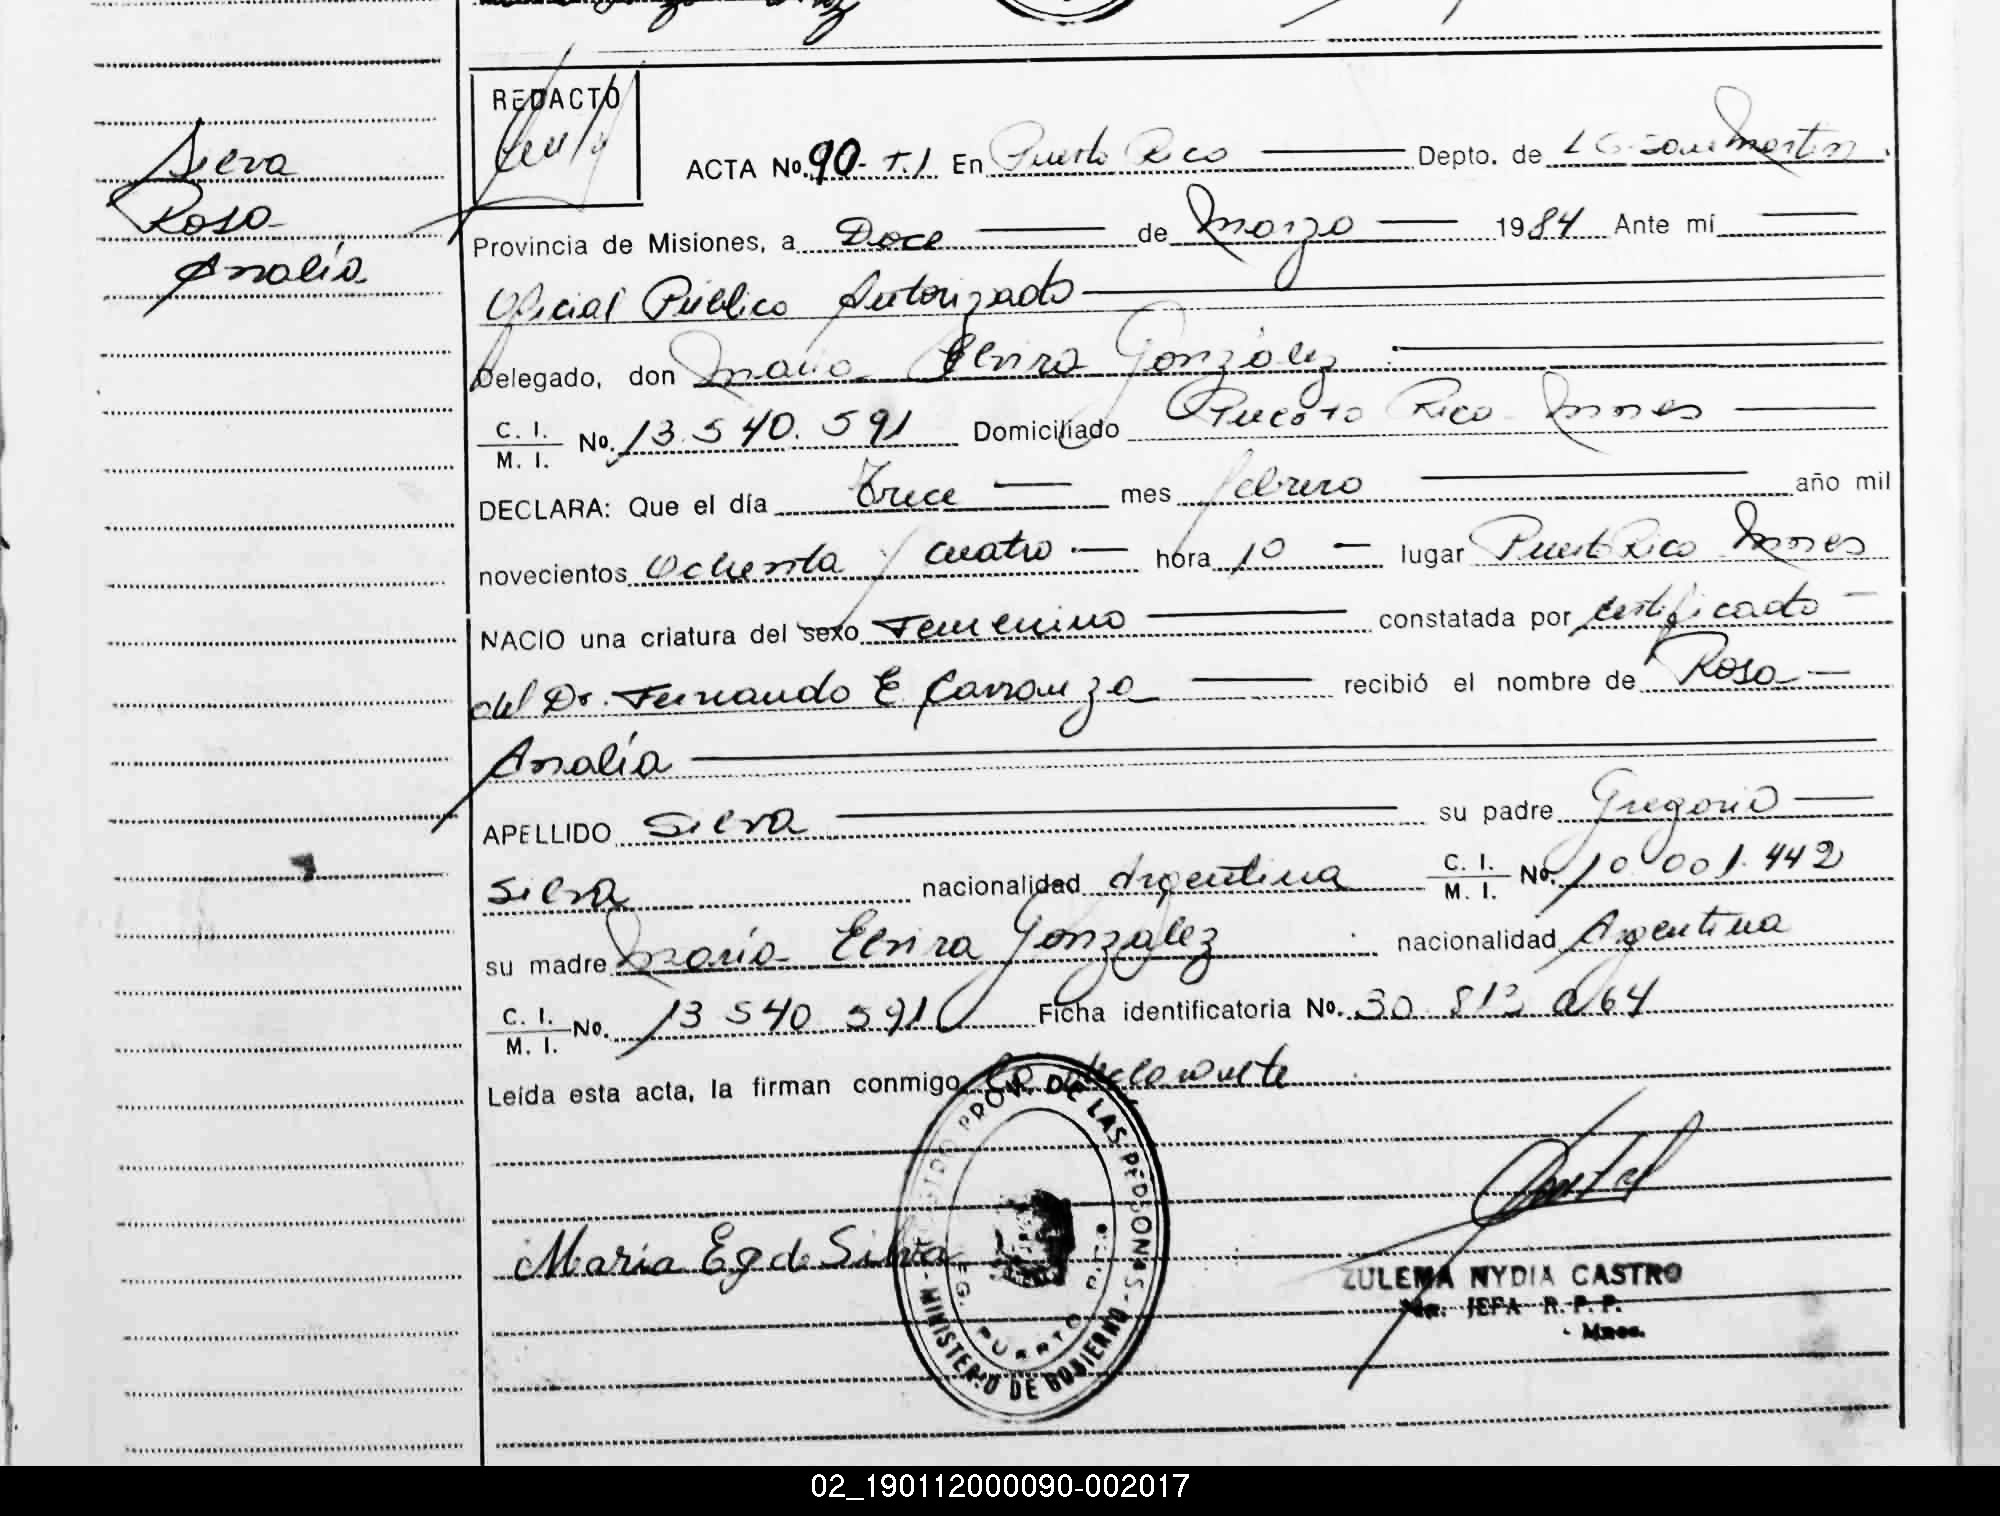 REDACTÓ
Silva
Rosa
Analía
ACTA No. 90- T.I En Puerto Rico Depto. de L G. San Martin.
Provincia de Misiones, a Doce de Marzo 1984 Ante mí
Oficial Público Autorizado
Delegado, don Maria Elvira González
C. I. / M. I. No. 13.540.591 Domiciliado Puerto Rico Mnes
DECLARA: Que el día Trece mes febrero año mil
novecientos Ochenta y cuatro hora 10 lugar Puerto Rico Mnes
NACIO una criatura del sexo Femenino constatada por certificado
del Dr. Fernando E. Carranza recibió el nombre de Rosa
Analía
APELLIDO Silva su padre Gregorio
Silva nacionalidad Argentina C. I. / M. I. No. 10.001.442
su madre María Elvira González nacionalidad Argentina
C. I. / M. I. No. 13 540 591 Ficha identificatoria No. 30.813 064
Leída esta acta, la firman conmigo la declarante
REGISTRO PROV. DE LAS PERSONAS - MINISTERIO DE GOBIERNO -
PUERTO RICO
Maria E g de Silva
ZULEMA NYDIA CASTRO
JEFA R. P. P.
Mnes.
02_190112000090-002017